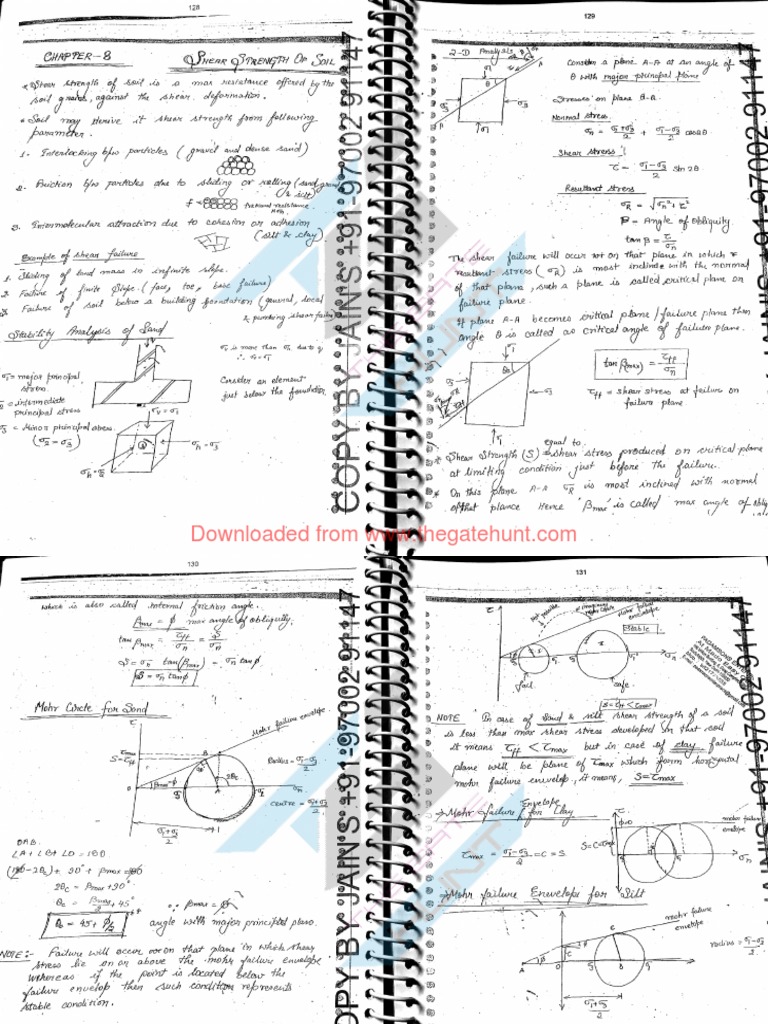 128
CHAPTER-8 SHEAR STRENGTH OF SOIL
* Shear strength of soil is a max resistance offered by the
soil grains, against the shear deformation.
* Soil may derive it shear strength from following
parameter.
1- Interlocking b/w particles (gravel and dense sand)
2- Friction b/w particles due to sliding or rolling (sand, gravel
& silt)
frictional resistance
3. Intermolecular attraction due to cohesion or adhesion
(silt & clay)
Example of shear failure
1. Sliding of land mass in infinite slope.
2. Failure of finite slope. (face, toe, base failure)
3. Failure of soil below a building foundation (general, local
& punching shear failure
Stability Analysis of Sand
σ1 = major principal
stress
σ2 = intermediate
principal stress
σ3 = Minor principal stress
(σ2 = σ3)
σv = σ1
σh = σ3
σh = σ2
Consider an element
just below the foundation.
129
2-D Analysis
Consider a plane A-A at an angle of
θ with major principal plane
Stresses on plane
Normal stress
σn = σ1+σ3/2 + σ1-σ3/2 cos2θ
Shear stress
τ = σ1-σ3/2 Sin 2θ
Resultant stress
σR = √σn²+τ²
β = Angle of obliquity
tan β = τ/σn
The shear failure will occur on that plane in which
resultant stress (σR) is most incline with the normal
of that plane, such a plane is called critical plane or
failure plane.
If plane A-A becomes critical plane / failure plane then
angle θ is called as critical angle of failure plane.
tan(βmax) = τff/σn
τff = shear stress at failure on
failure plane.
equal to
* Shear Strength (S) = shear stress produced on critical plane
at limiting condition just before the failure.
* On this plane A-A σR is most inclined with normal
of that plane Hence 'βmax' is called max angle of
Downloaded from www.thegatehunt.com
130
which is also called internal friction angle.
βmax = ϕ max angle of obliquity.
tan βmax = τff/σn = S/σn
S = σn tan(βmax) = σn tanϕ
S = σn tanϕ
Mohr Circle for Sand
Mohr failure envelope
τmax
S = τff
βmax = ϕ
2θc
Radius = σ1-σ3/2
Centre = σ1+σ3/2
σ1+σ3/2
OAB
∠A + ∠B + ∠O = 180
(180-2θc) + 90° + βmax = 180
2θc = βmax + 90°
θc = βmax/2 + 45°
∵ βmax = ϕ
θc = 45 + ϕ/2 angle with major principal plane.
NOTE:- Failure will occur on that plane in which shear
stress lie on or above the mohr failure envelope
whereas if the point is located below the
failure envelop then such condition represents
stable condition.
131
Mohr failure
envelope
Stable
fail safe
S = τff < τmax
NOTE In case of sand & silt shear strength of a soil
is less than max shear stress developed in that soil
it means τff < τmax but in case of clay failure
plane will be plane of τmax which form horizontal
mohr failure envelop, it means, S = τmax
→ Mohr failure Envelope for Clay
τmax = σ1-σ3/2 = C = S
S = C = τmax
ϕ=0
mohr failure
envelope
→ Mohr failure Envelope for Silt
mohr failure
envelope
radius = σ1-σ3/2
σ1+σ3/2
COPY BY JAIN'S +91-97002-91147
COPY BY JAIN'S +91-97002-91147
COPY BY JAIN'S +91-97002-91147